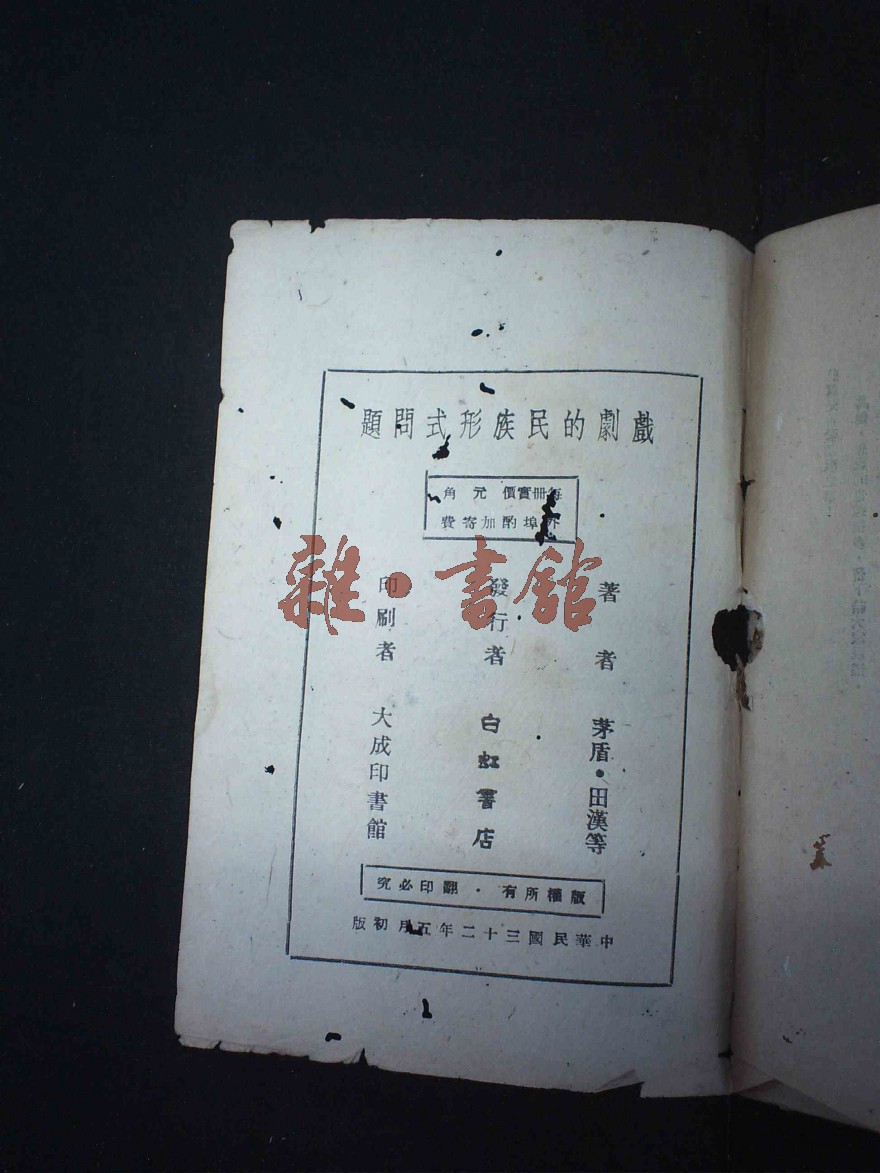 戲劇的民族形式問題
每冊實價 元 角
外埠酌加寄費
著者 茅盾·田漢等
發行者 白虹書店
印刷者 大成印書館
版權所有·翻印必究
中華民國三十二年五月初版
雜·書館